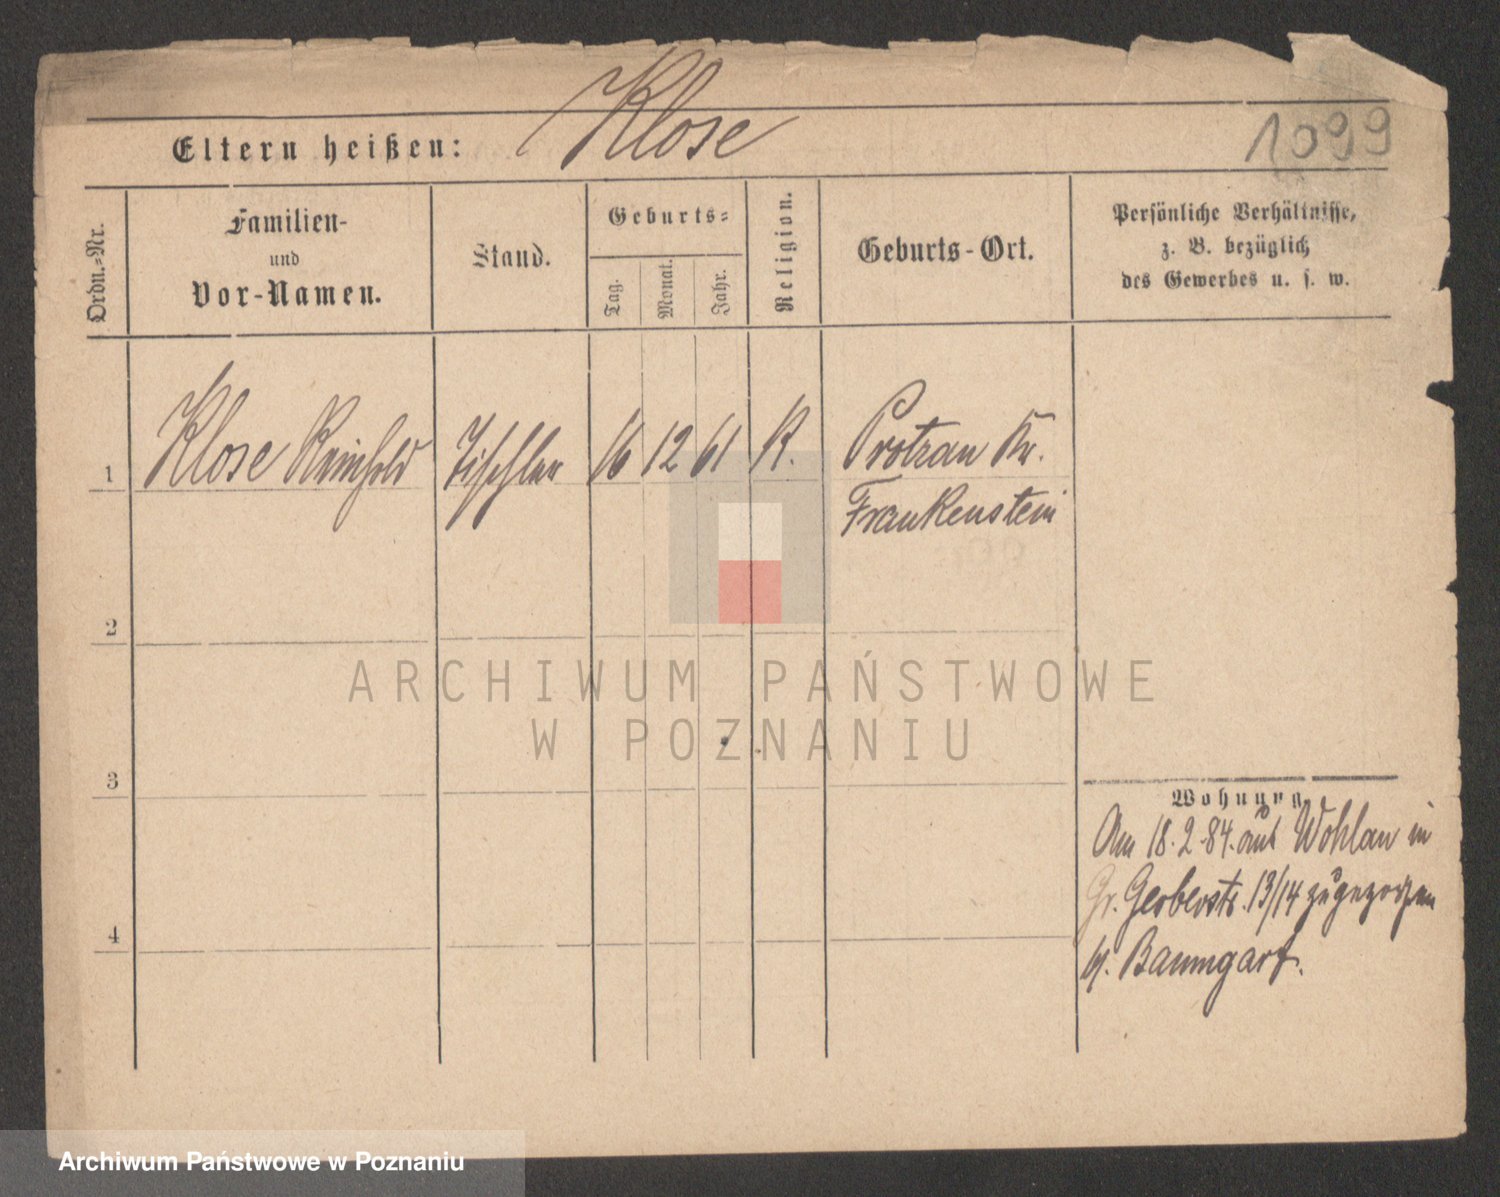 Klose
Eltern heißen:
1099
Ordn.=Nr.
Familien-
und
Vor-Namen.
Stand.
Geburts=
Tag.
Monat.
Jahr.
Religion.
Geburts-Ort.
Persönliche Verhältnisse,
z. B. bezüglich
des Gewerbes u. s. w.
1 Klose Reinhold Tischler 16 12 61 K. Protzan Kr.
Frankenstein
2
3
4
Wohnung
Am 18.2.84. aus Wohlau in
Gr. Gerberstr. 13/14 zugezogen
b/. Baumgart.
ARCHIWUM PAŃSTWOWE
W POZNANIU
Archiwum Państwowe w Poznaniu